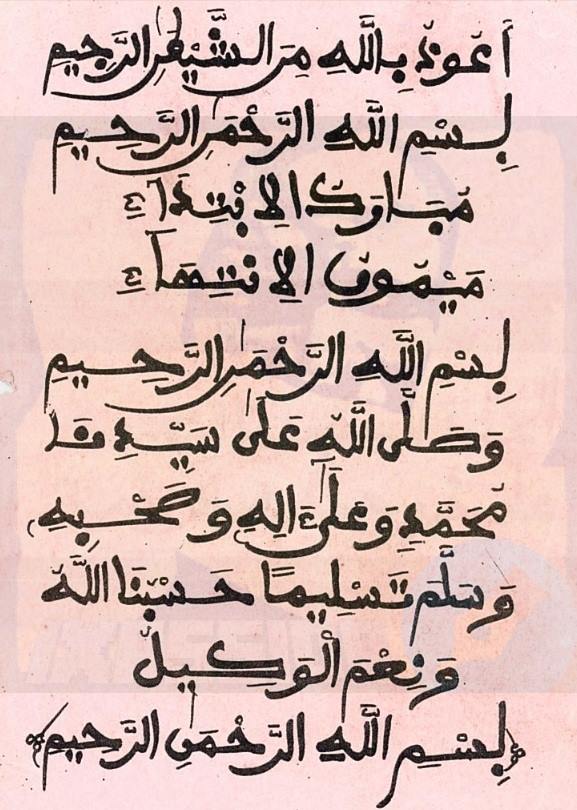 أَعُوذُ بِاللَّهِ مِنَ الشَّيْطٰنِ الرَّجِيمِ
بِسْمِ اللَّهِ الرَّحْمَنِ الرَّحِيمِ
مُبَارَكُ الِابْتِدَاءِ
مَيْمُونُ الِانْتِهَاءِ
بِسْمِ اللَّهِ الرَّحْمَنِ الرَّحِيمِ
وَصَلَّى اللَّهُ عَلَى سَيِّدِنَا
مُحَمَّدٍ وَعَلَى ءَالِهِ وَصَحْبِهِ
وَسَلَّمَ تَسْلِيمًا حَسْبُنَا اللَّهُ
وَنِعْمَ الْوَكِيلُ
بِسْمِ اللَّهِ الرَّحْمَنِ الرَّحِيمِ